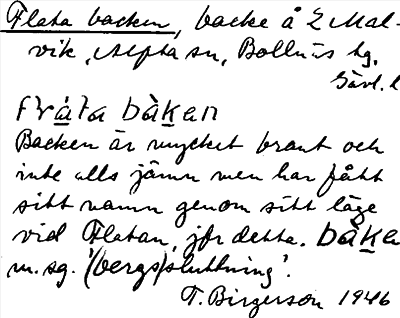 Flata backen, backe å Z Mal-
vik, Alfta sn, Bollnäs tg.
Gävl. l
frà̱ta bàḵen
Backen är mycket brant och
inte alls jämn men har fått
sitt namn genom sitt läge
vid Flatan, jfr detta. bàḵe
m. sg. '(bergs)sluttning'.
T. Birgerson 1946